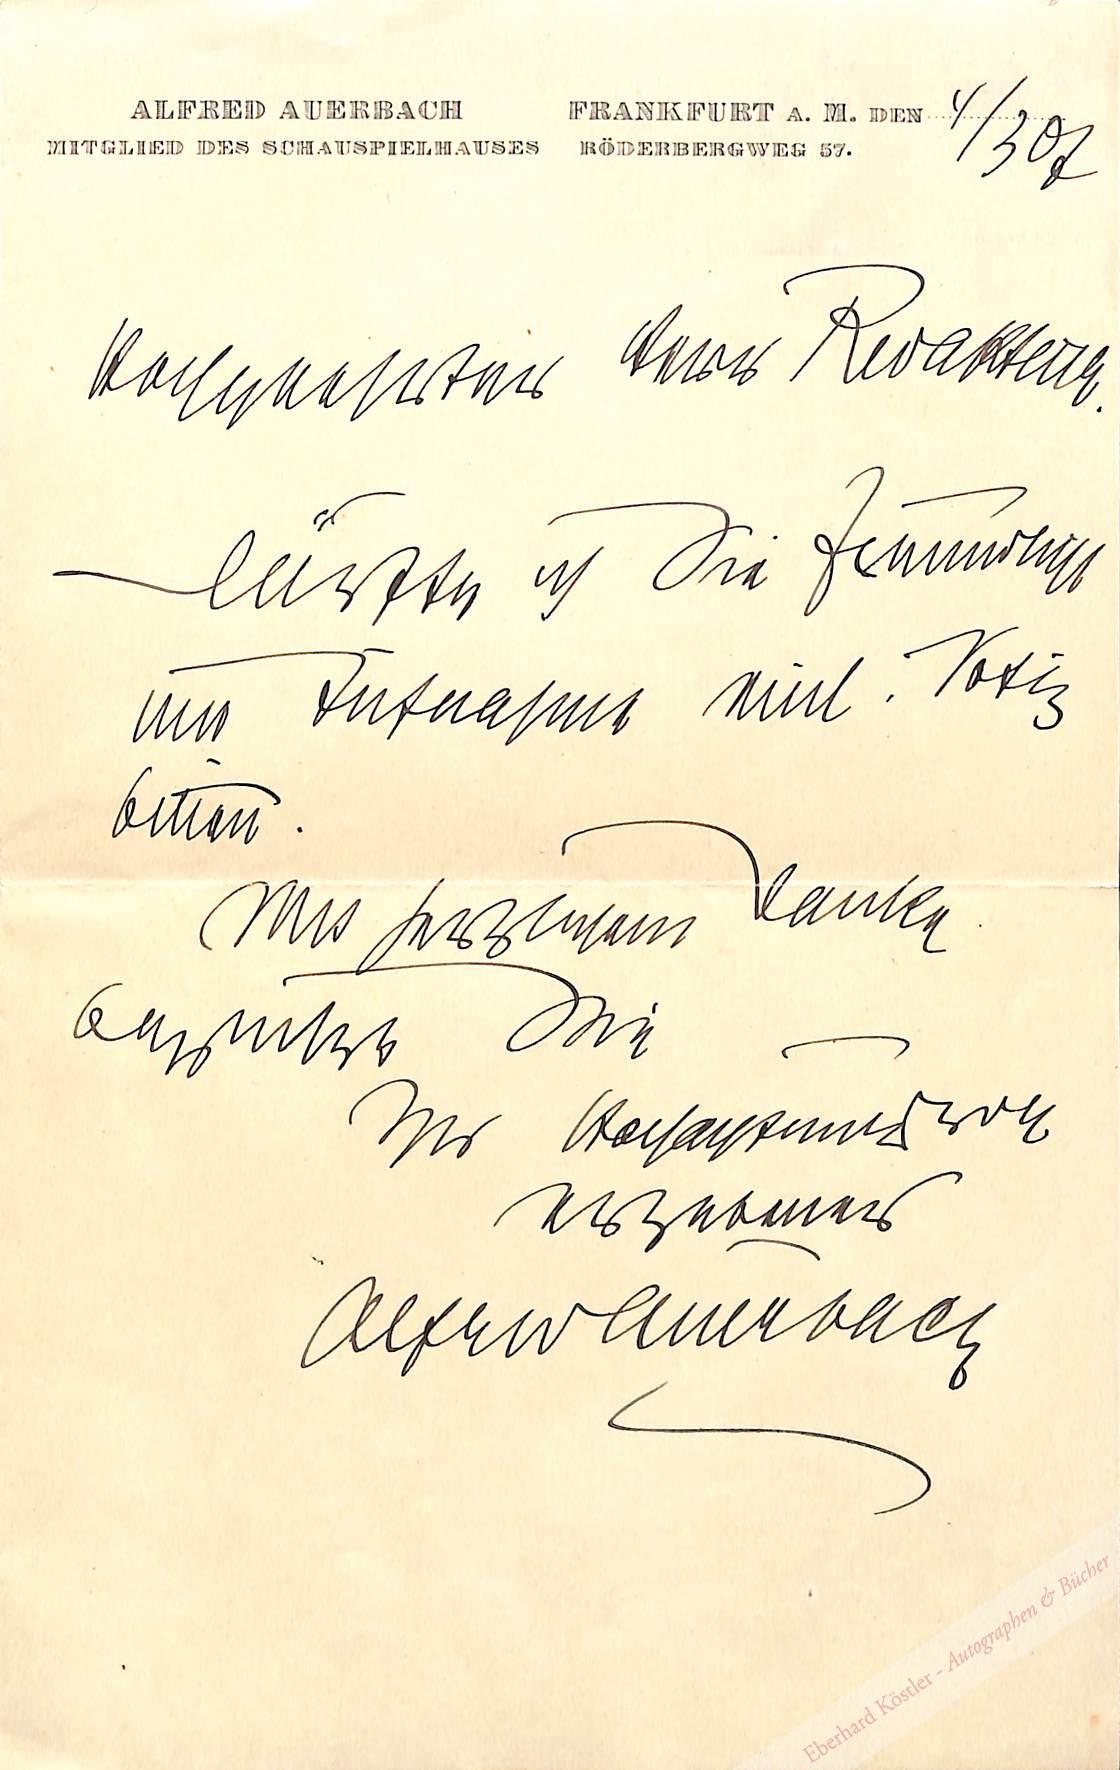 ALFRED AUERBACH
MITGLIED DES SCHAUSPIELHAUSES
FRANKFURT A. M. DEN 4/3 07
RÖDERBERGWEG 57.
Hochgeehrter Herr Redakteur.
Dürfte ich Sie freundlichst
um Aufnahme einl. Notiz
bitten.
Mit herzlichem Danke
begrüßt Sie
Ihr Hochachtungsvoll
ergebener
Alfred Auerbach
Eberhard Köstler - Autographen & Bücher